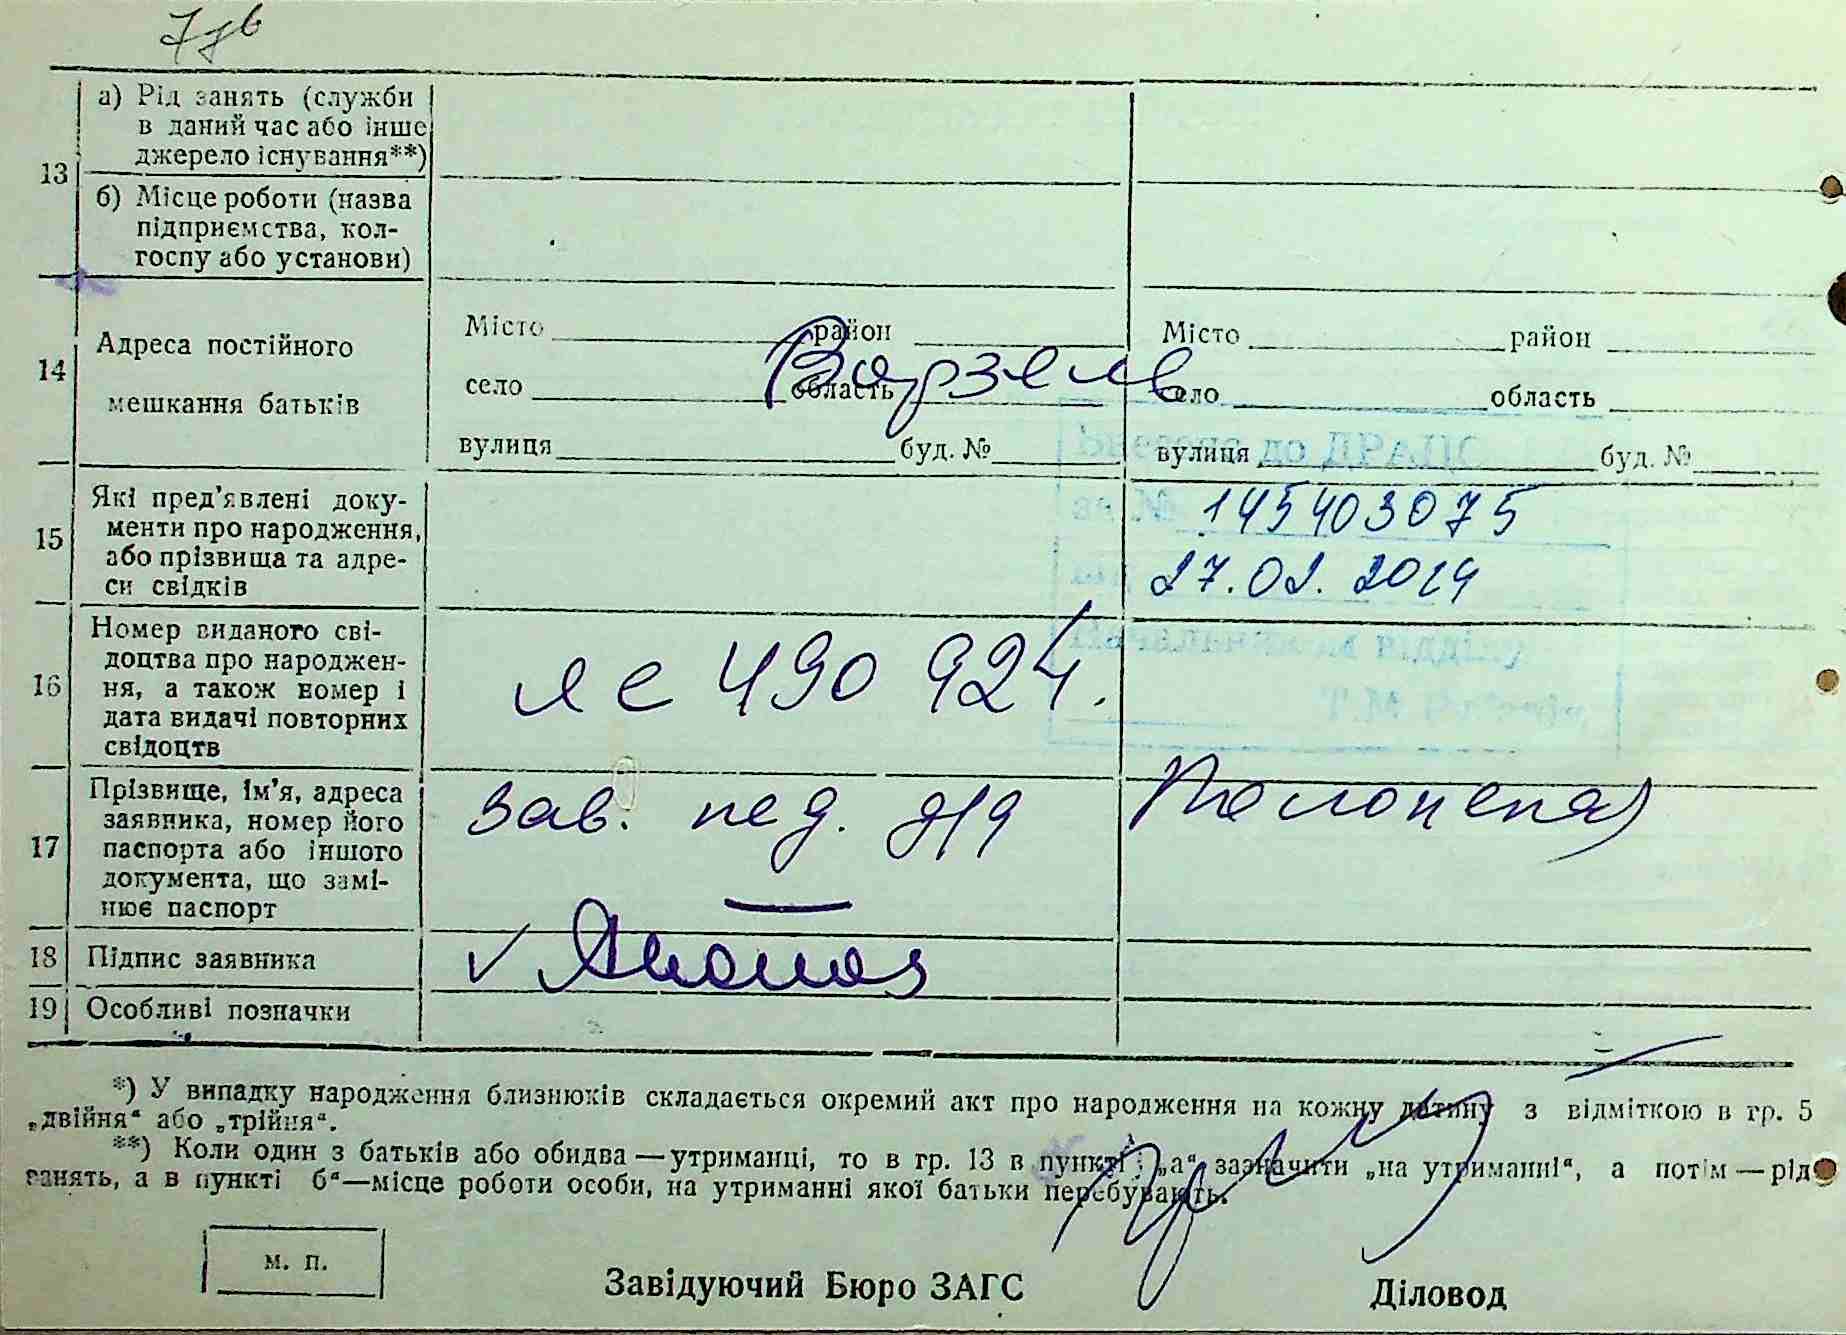 13
а) Рід занять (служби
в даний час або інше
джерело існування**)
б) Місце роботи (назва
підприємства, кол-
госпу або установи)
14
Адреса постійного
мешкання батьків
Місто район
село область
вулиця буд. №
Ворзель
Місто район
село область
вулиця буд. №
15
Які пред’явлені доку-
менти про народження,
або прізвища та адре-
си свідків
до ДРАЦС
№ 145403075
27.02.2024
16
Номер виданого сві-
доцтва про народжен-
ня, а також номер і
дата видачі повторних
свідоцтв
яс 490 924.
Начальник відділу
17
Прізвище, ім’я, адреса
заявника, номер його
паспорта або іншого
документа, що замі-
нює паспорт
зав. пед. д/д
18 Підпис заявника
19 Особливі позначки
*) У випадку народження близнюків складається окремий акт про народження на кожну дитину з відміткою в гр. 5
„двійня“ або „трійня“.
**) Коли один з батьків або обидва — утриманці, то в гр. 13 в пункті „а“ зазначити „на утриманні“, а потім — рід
занять, а в пункті б“—місце роботи особи, на утриманні якої батьки перебувають.
м. п.
Завідуючий Бюро ЗАГС
Діловод